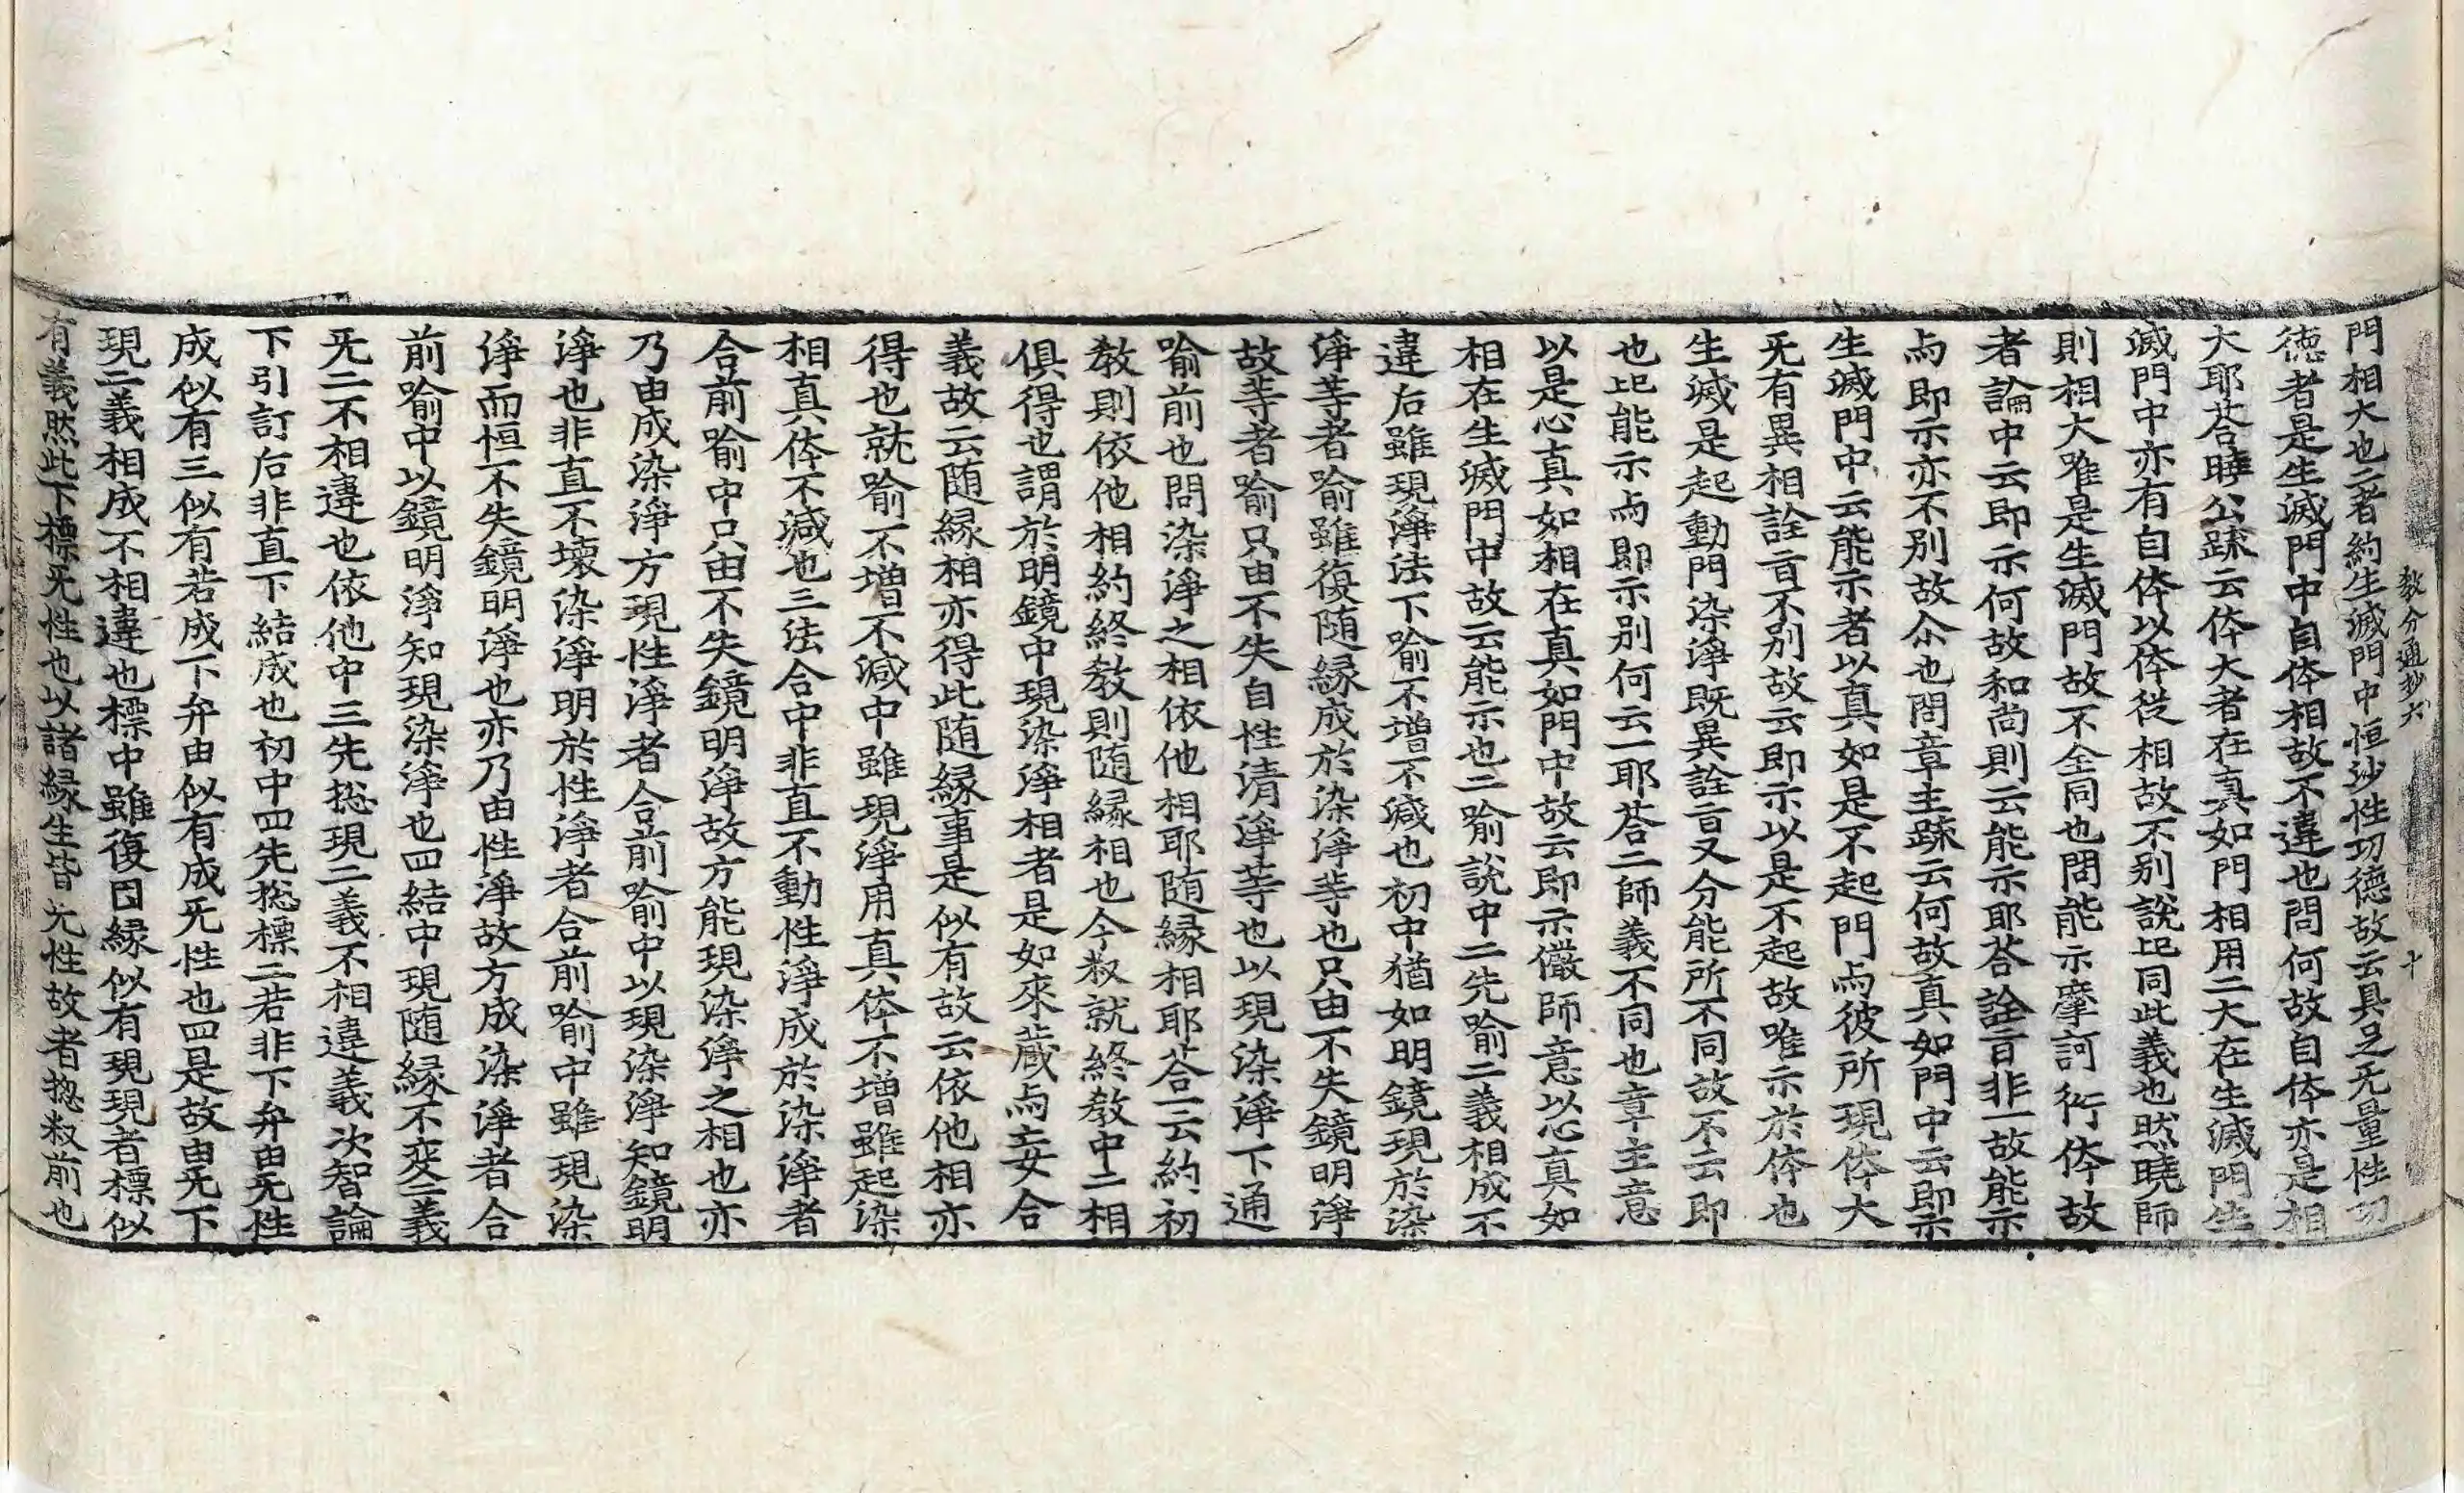 教分通抄六　十
門相大也二者約生滅門中恒沙性功德故云具足无量性功
德者是生滅門中自体相故不違也問何故自体亦是相
大耶荅曉公疏云体大者在真如門相用二大在生滅門生
滅門中亦有自体以体從相故不别說此同此義也然曉師
則相大唯是生滅門故不全同也問能示摩訶衍体故
者論中云即示何故和尚則云能示耶荅詮盲非一故能示
与即示亦不别故尒也問章主疏云何故真如門中云即示
生滅門中云能示者以真如是不起門与彼所現体大
无有異相詮盲不别故云即示以是不起故唯示於体也
生滅是起動門染淨既異詮盲又分能所不同故不云即
也此能示与即示别何云一耶荅二師義不同也章主意
以是心真如相在真如門中故云即示儼師意以心真如
相在生滅門中故云能示也二喻說中二先喻二義相成不
違后雖現淨法下喻不增不減也初中猶如明鏡現於染
淨等者喻雖復随緣成於染淨等也只由不失鏡明淨
故等者喻只由不失自性清淨等也以現染淨下通
喻前也問染淨之相依他相耶随緣相耶荅一云約初
教則依他相約終教則随緣相也今叙就終教中二相
俱得也謂於明鏡中現染淨相者是如來藏与妄合
義故云随緣相亦得此随緣事是似有故云依他相亦
得也就喻不增不減中雖現淨用真体不增雖起染
相真体不減也三法合中非直不動性淨成於染淨者
合前喻中只由不失鏡明淨故方能現染淨之相也亦
乃由成染淨方現性淨者合前喻中以現染淨知鏡明
淨也非直不壞染淨明於性淨者合前喻中雖現染
淨而恒不失鏡明淨也亦乃由性淨故方成染淨者合
前喻中以鏡明淨知現染淨也四結中現随緣不変二義
无二不相違也依他中三先捴現二義不相違義次智論
下引訂后非直下結成也初中四先捴標二若非下弁由无性
成似有三似有若成下弁由似有成无性也四是故由无下
現二義相成不相違也標中雖復因緣似有現現者標似
有義然此下標无性也以諸緣生皆无性故者捴叙前也